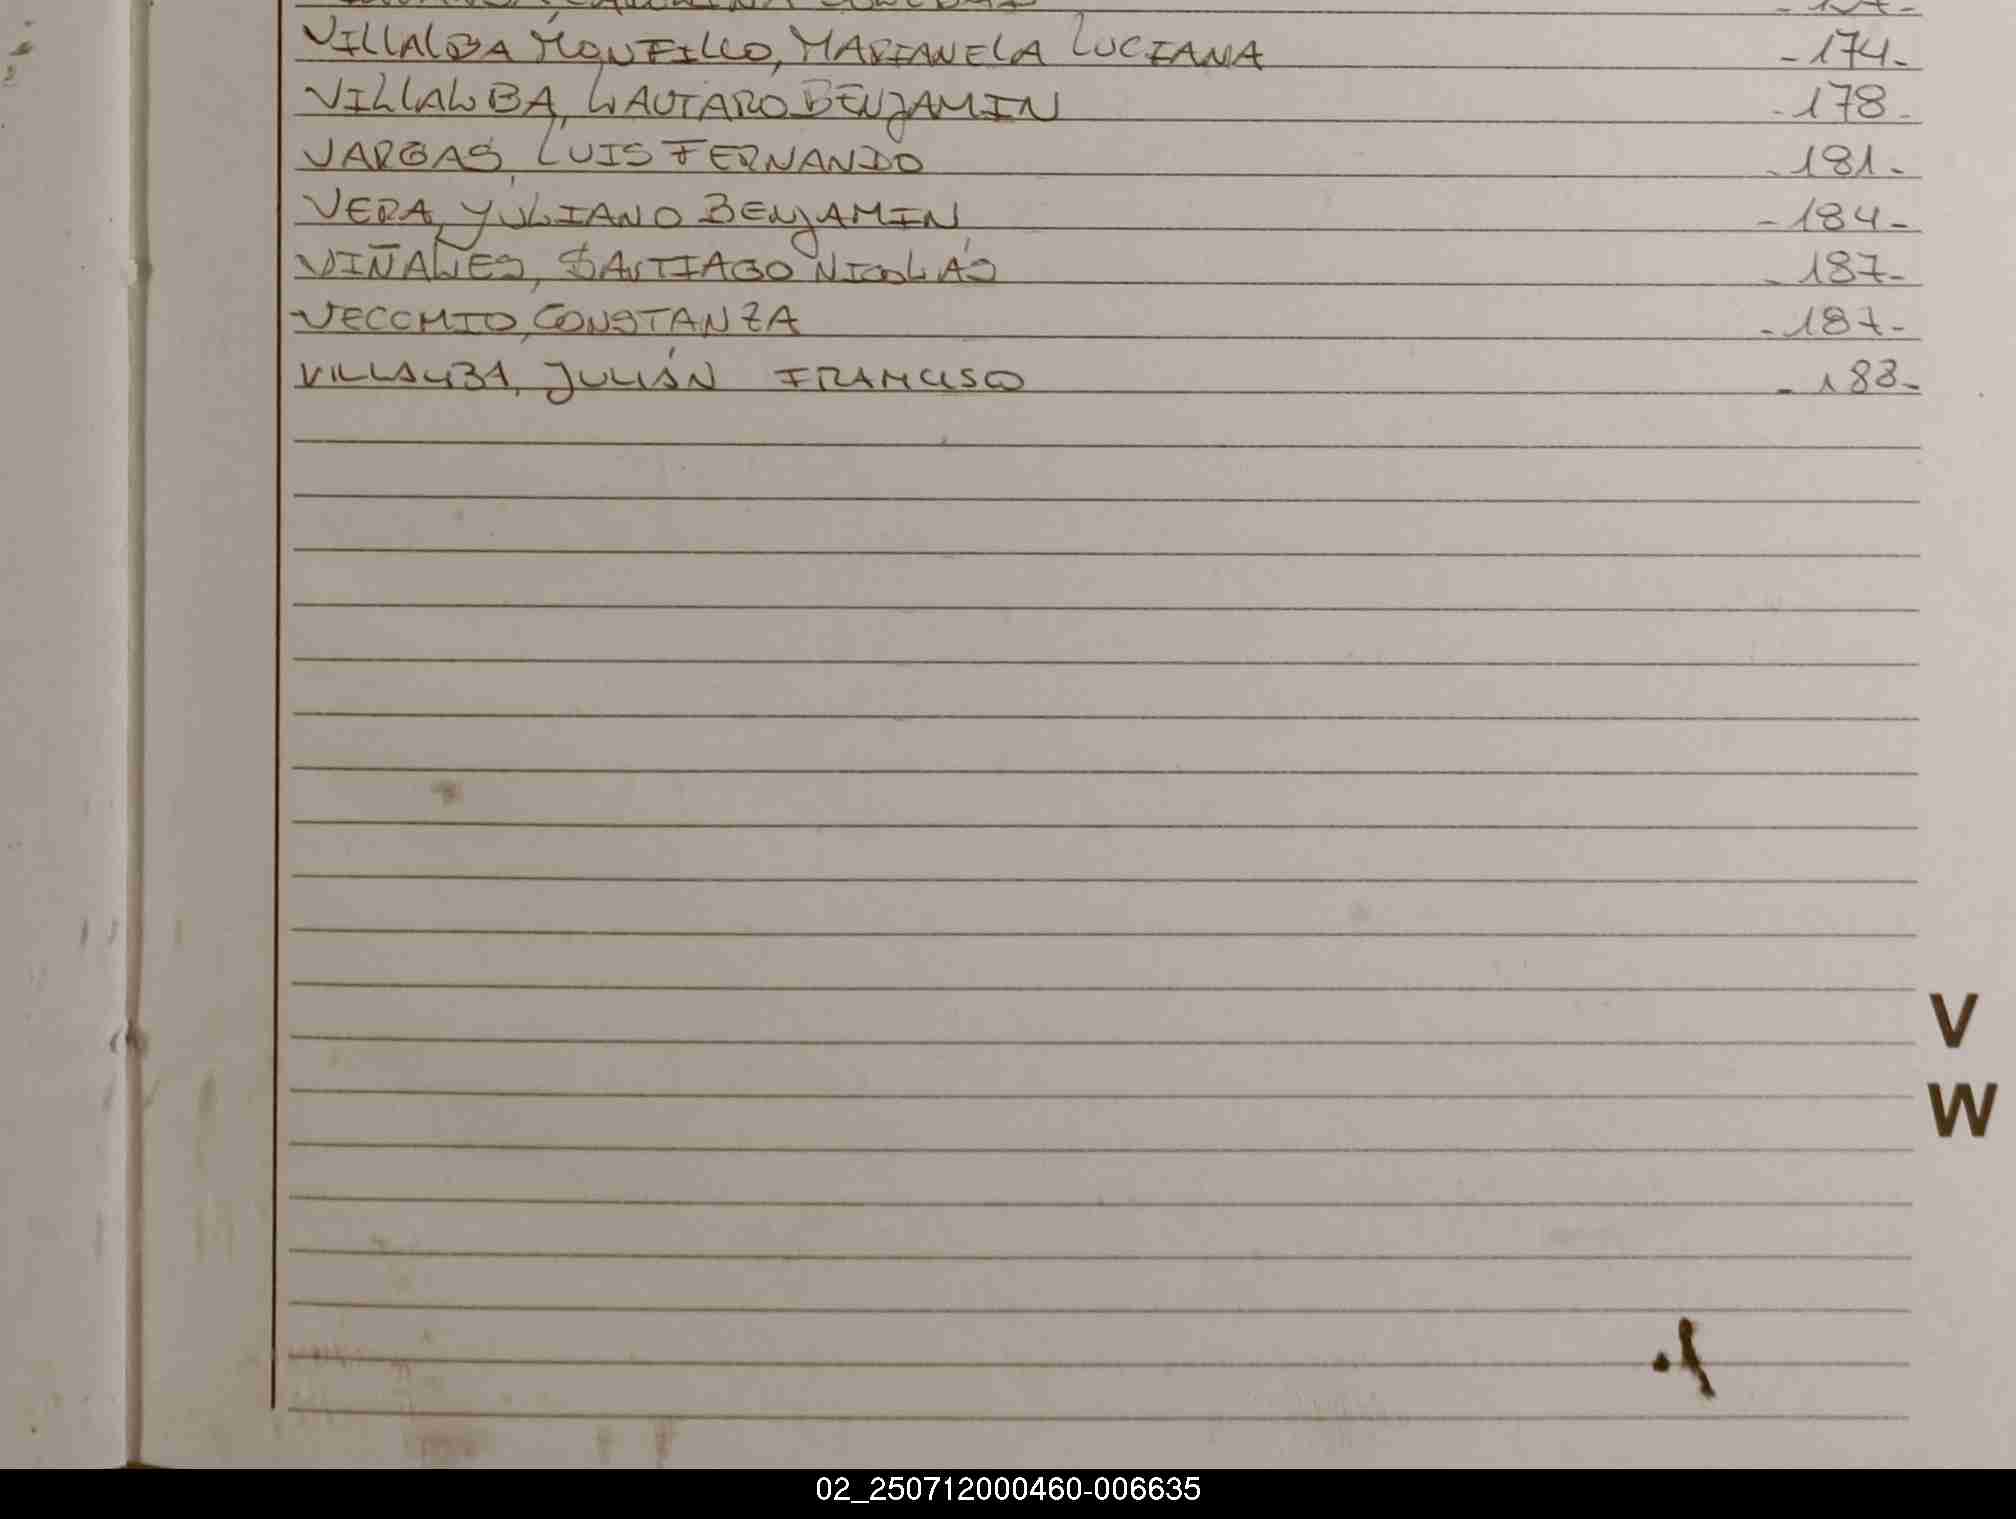 VILLALBA MONFILLO, MARIANELA LUCIANA -174-
VILLALBA, LAUTARO BENJAMIN -178-
VARGAS, LUIS FERNANDO -181-
VERA, YULIANO BENJAMIN -184-
VIÑALES, SANTIAGO NICOLÁS -187-
VECCHIO, CONSTANZA -187-
VILLALBA, JULIÁN FRANCISCO -188-
V
W
02_250712000460-006635